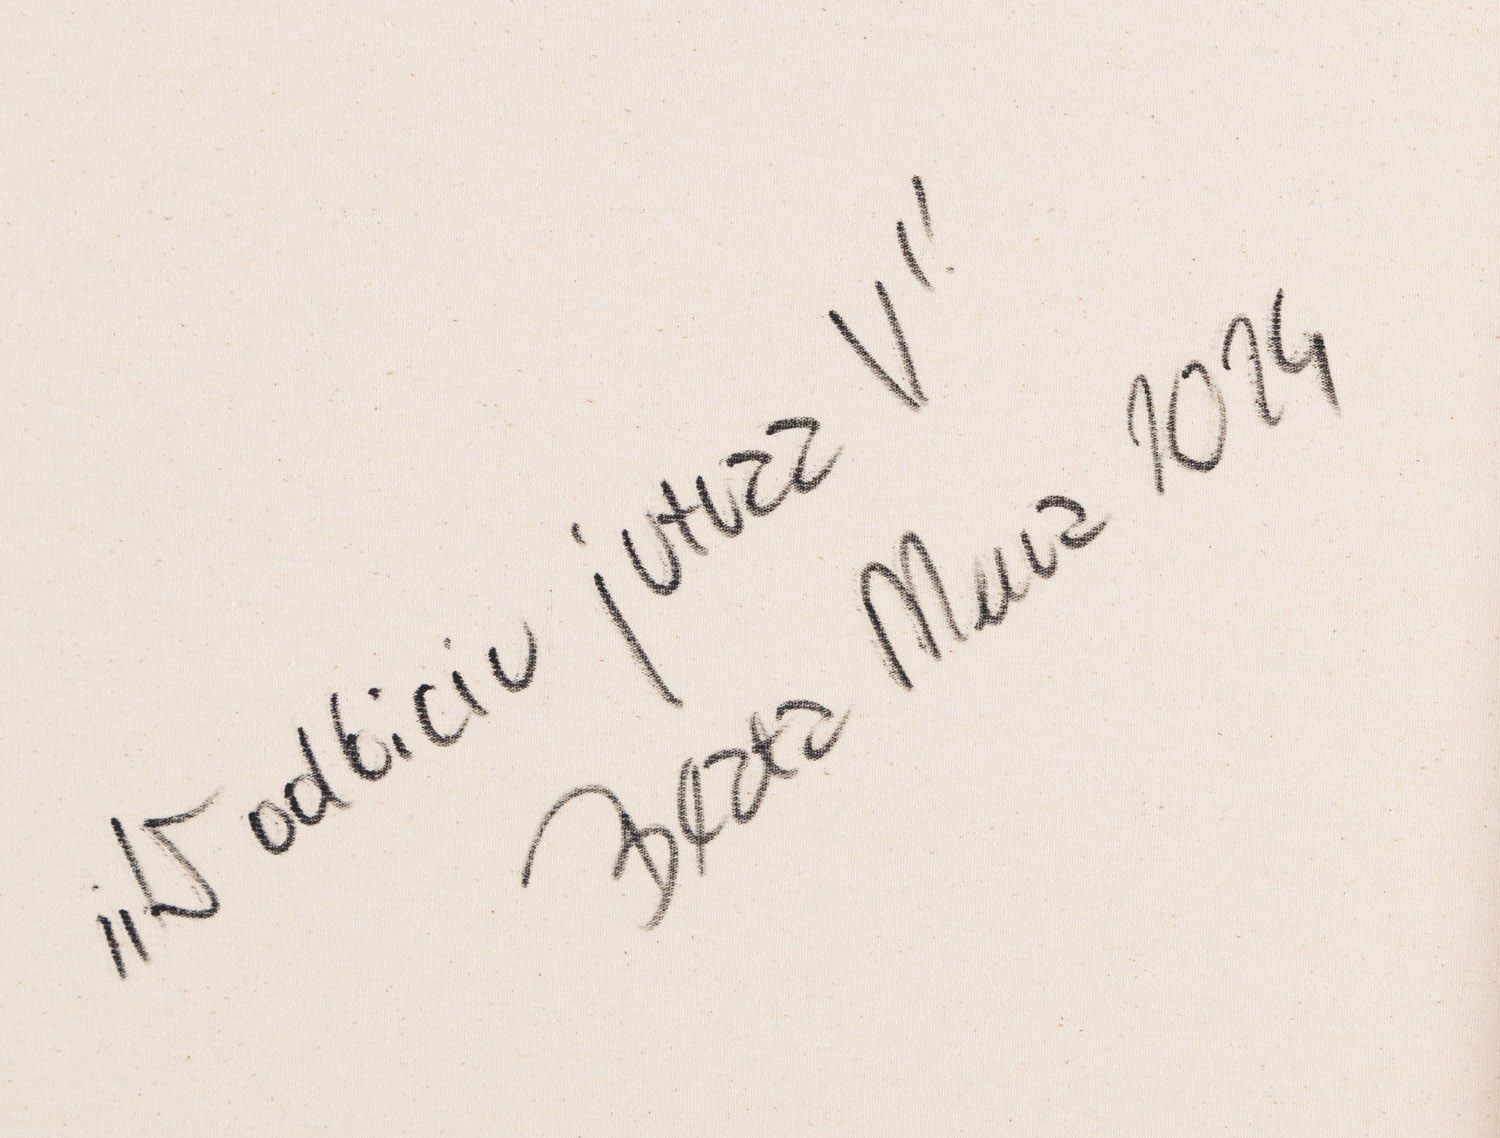 „W odbiciu jutra V"
Beata Murawa 2024